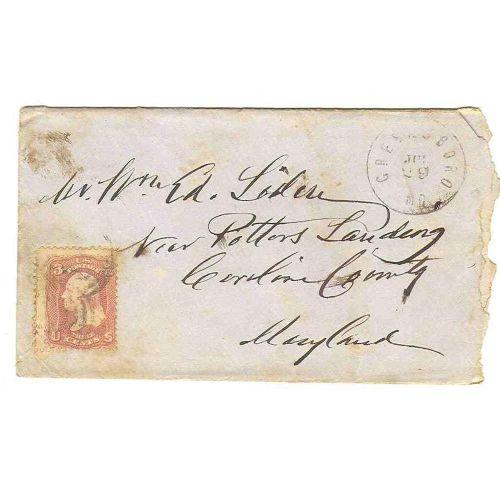 GREENSBORO
JUL
9
MD.
Mr. Wm. Ed.
Near Potters Landing
Caroline County
Maryland
3
U S